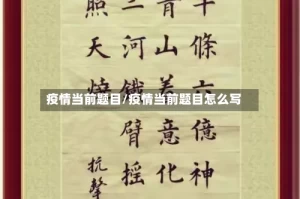 千條六億神
青山着意化
三河鐵臂搖
照天燒
疫情当前题目/疫情当前题目怎么写